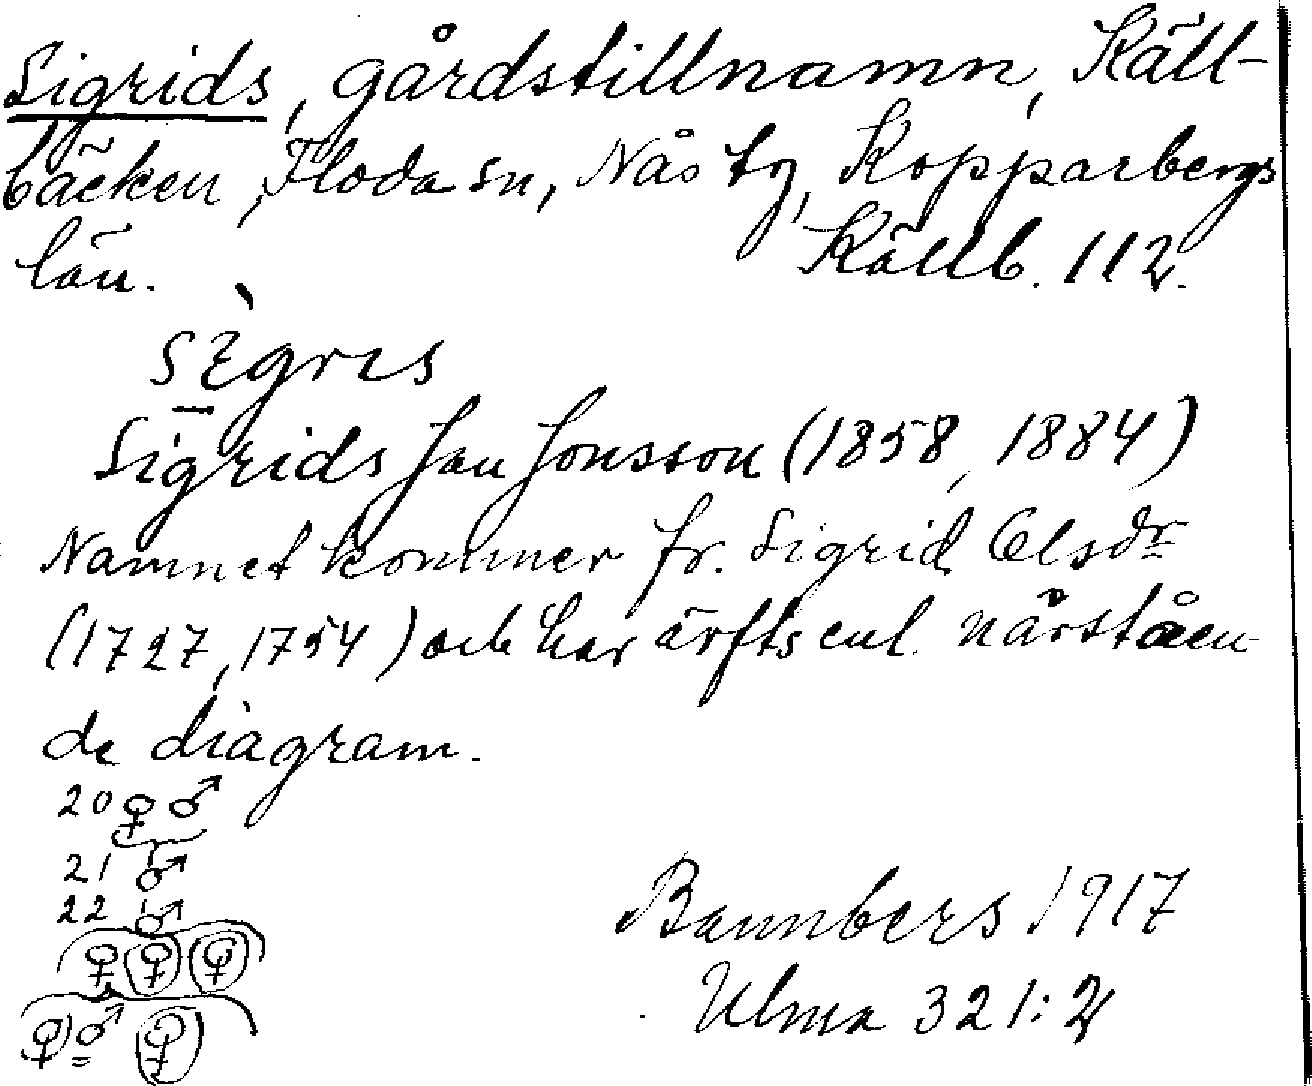 Sigrids, gårdstillnamn, Käll-
bäcken, Floda sn, Nås tg, Kopparbergs
län. Källb. 112.
sìgrɩs
Sigrids Jan Jonsson (1858, 1884)
Namnet kommer fr. Sigrid Olsdr
(1727, 1754) och har ärfts enl. nårståen-
de diagram.
20 ♀ ♂
21 ♂
22 ♂
♀ ♀ ♀
♀ ♂ ♀
Bannbers 1917
Ulma 321:2